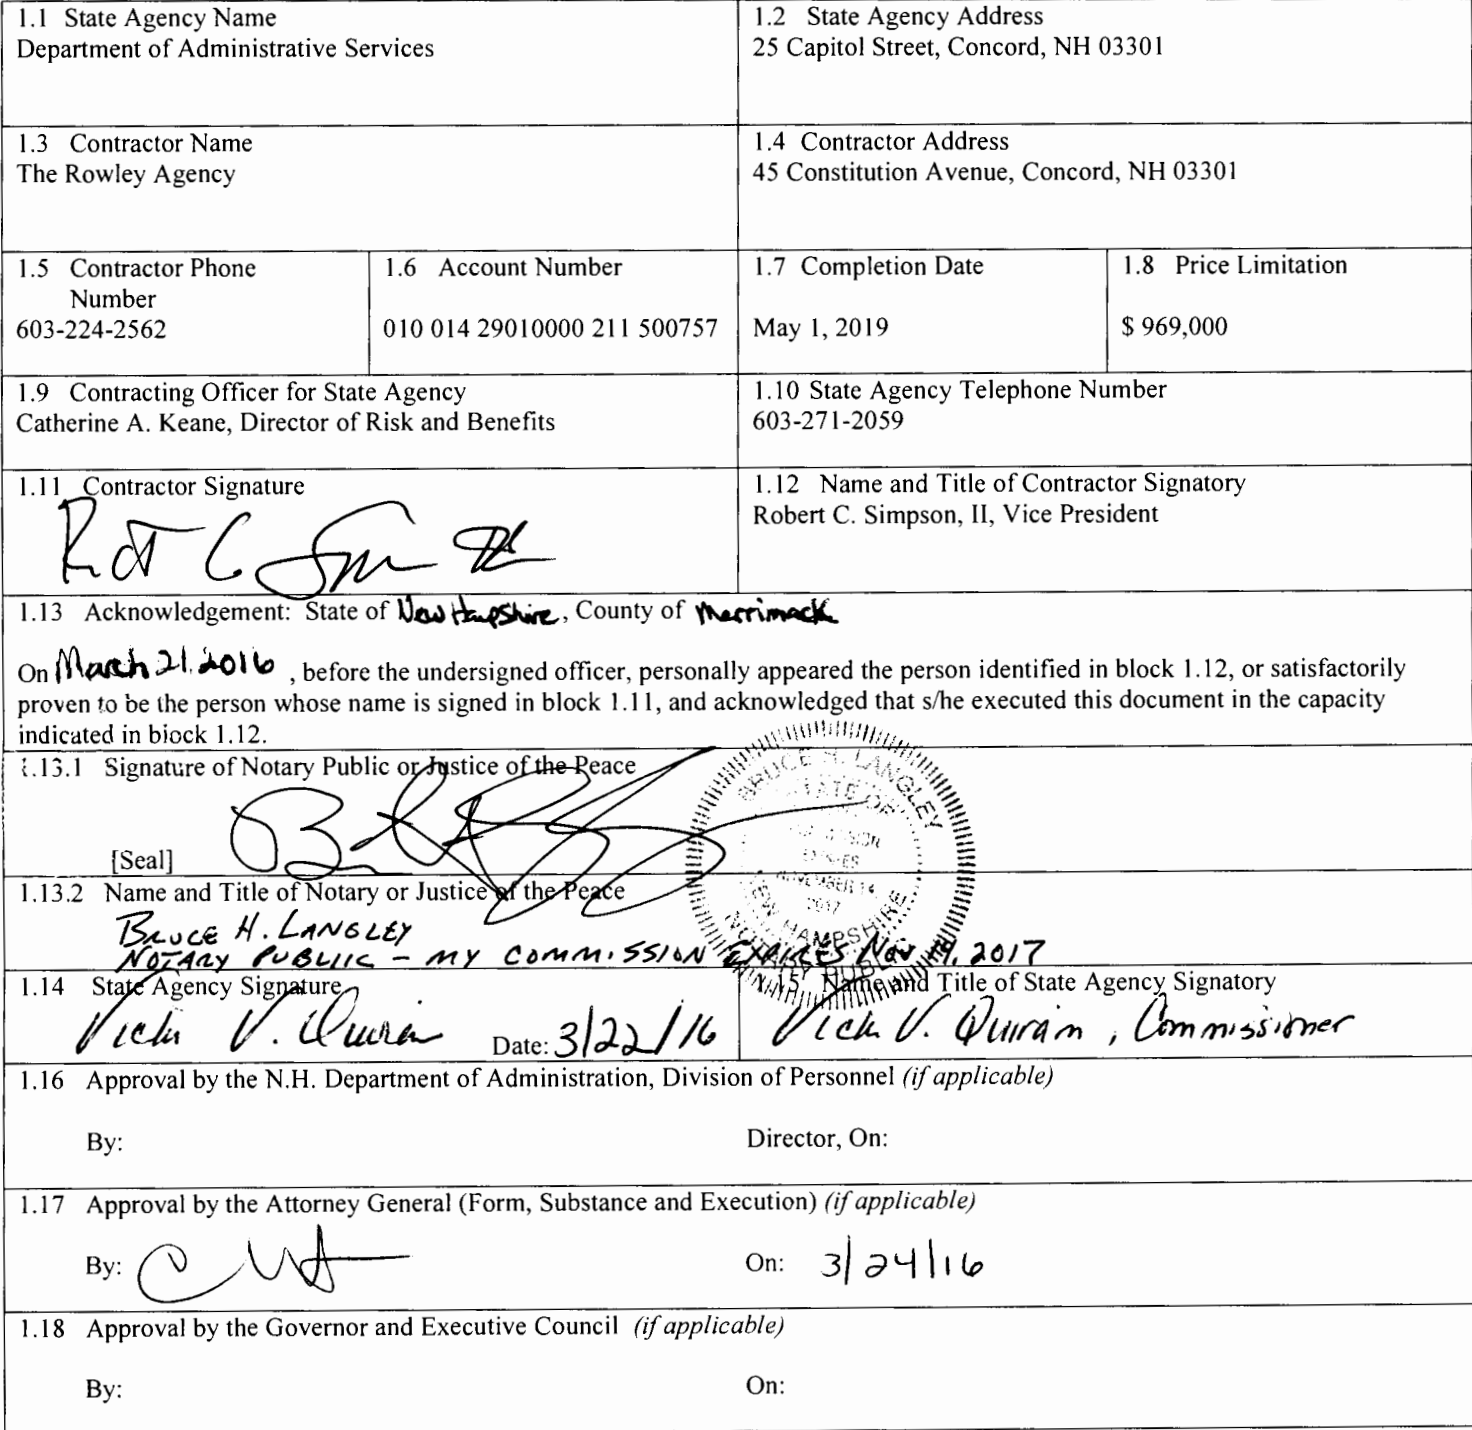 1.1 State Agency Name
Department of Administrative Services
1.2 State Agency Address
25 Capitol Street, Concord, NH 03301
1.3 Contractor Name
The Rowley Agency
1.4 Contractor Address
45 Constitution Avenue, Concord, NH 03301
1.5 Contractor Phone
Number
603-224-2562
1.6 Account Number
010 014 29010000 211 500757
1.7 Completion Date
May 1, 2019
1.8 Price Limitation
$ 969,000
1.9 Contracting Officer for State Agency
Catherine A. Keane, Director of Risk and Benefits
1.10 State Agency Telephone Number
603-271-2059
1.11 Contractor Signature
1.12 Name and Title of Contractor Signatory
Robert C. Simpson, II, Vice President
1.13 Acknowledgement: State of New Hampshire, County of Merrimack
On March 21, 2016, before the undersigned officer, personally appeared the person identified in block 1.12, or satisfactorily
proven to be the person whose name is signed in block 1.11, and acknowledged that s/he executed this document in the capacity
indicated in block 1.12.
1.13.1 Signature of Notary Public or Justice of the Peace
[Seal]
BRUCE H. LANGLEY
STATE OF
COMMISSION
EXPIRES
NOVEMBER 14
2017
NEW HAMPSHIRE
NOTARY PUBLIC
1.13.2 Name and Title of Notary or Justice of the Peace
BRUCE H. LANGLEY
NOTARY PUBLIIC - MY COMMISSION EXPIRES Nov 14, 2017
1.14 State Agency Signature
Vicki V. Quiram
Date: 3/22/16
1.15 Name and Title of State Agency Signatory
Vicki V. Quiram, Commissioner
1.16 Approval by the N.H. Department of Administration, Division of Personnel (if applicable)
By:
Director, On:
1.17 Approval by the Attorney General (Form, Substance and Execution) (if applicable)
By:
On: 3/24/16
1.18 Approval by the Governor and Executive Council (if applicable)
By:
On: